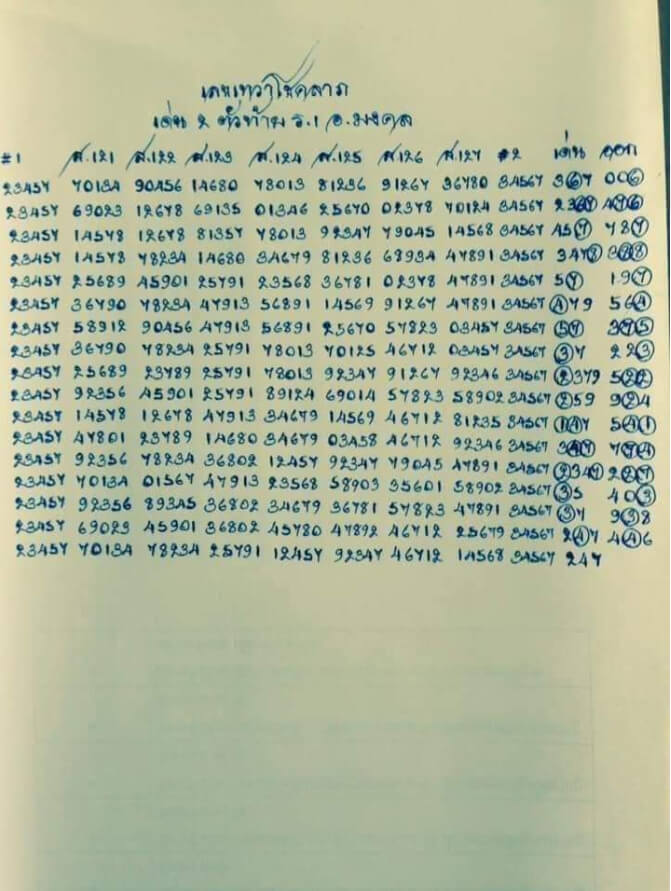 เลขเทวาโชคลาภ
เด่น 2 ตัวท้าย ร.1 อ.มงคล
#1 ส.121 ส.122 ส.123 ส.124 ส.125 ส.126 ส.127 #2 เด่น ออก
23457 70134 90456 14680 78013 81236 91267 36780 34567 367 006
23457 69023 12678 69135 01346 25670 02378 70124 34567 2367 476
23457 14578 12678 81357 78013 92347 79045 14568 34567 457 787
23457 14578 78234 14680 34679 81236 68934 47891 34567 3478 328
23457 25689 45901 25791 23568 36781 02378 47891 34567 57 197
23457 36790 78234 47913 56891 14569 91267 47891 34567 479 564
23457 58912 90456 47913 56891 25670 57823 03457 34567 57 375
23457 36790 78234 25791 78013 70125 46712 03457 34567 37 223
23457 25689 23789 25791 78013 92347 91267 92346 34567 2379 522
23457 92356 45901 25791 89124 69014 57823 58902 34567 259 924
23457 14578 12678 47913 34679 14569 46712 81235 34567 147 541
23457 47801 23789 14680 34679 03458 46712 92346 34567 347 774
23457 92356 78234 36802 12457 92347 79045 47891 34567 2347 227
23457 70134 01567 47913 23568 58903 35601 58902 34567 35 403
23457 92356 89345 36802 34679 36781 57823 47891 34567 37 938
23457 69023 45901 36802 45780 47892 46712 25679 34567 247 446
23457 70134 78234 25791 12457 92347 46712 14568 34567 247